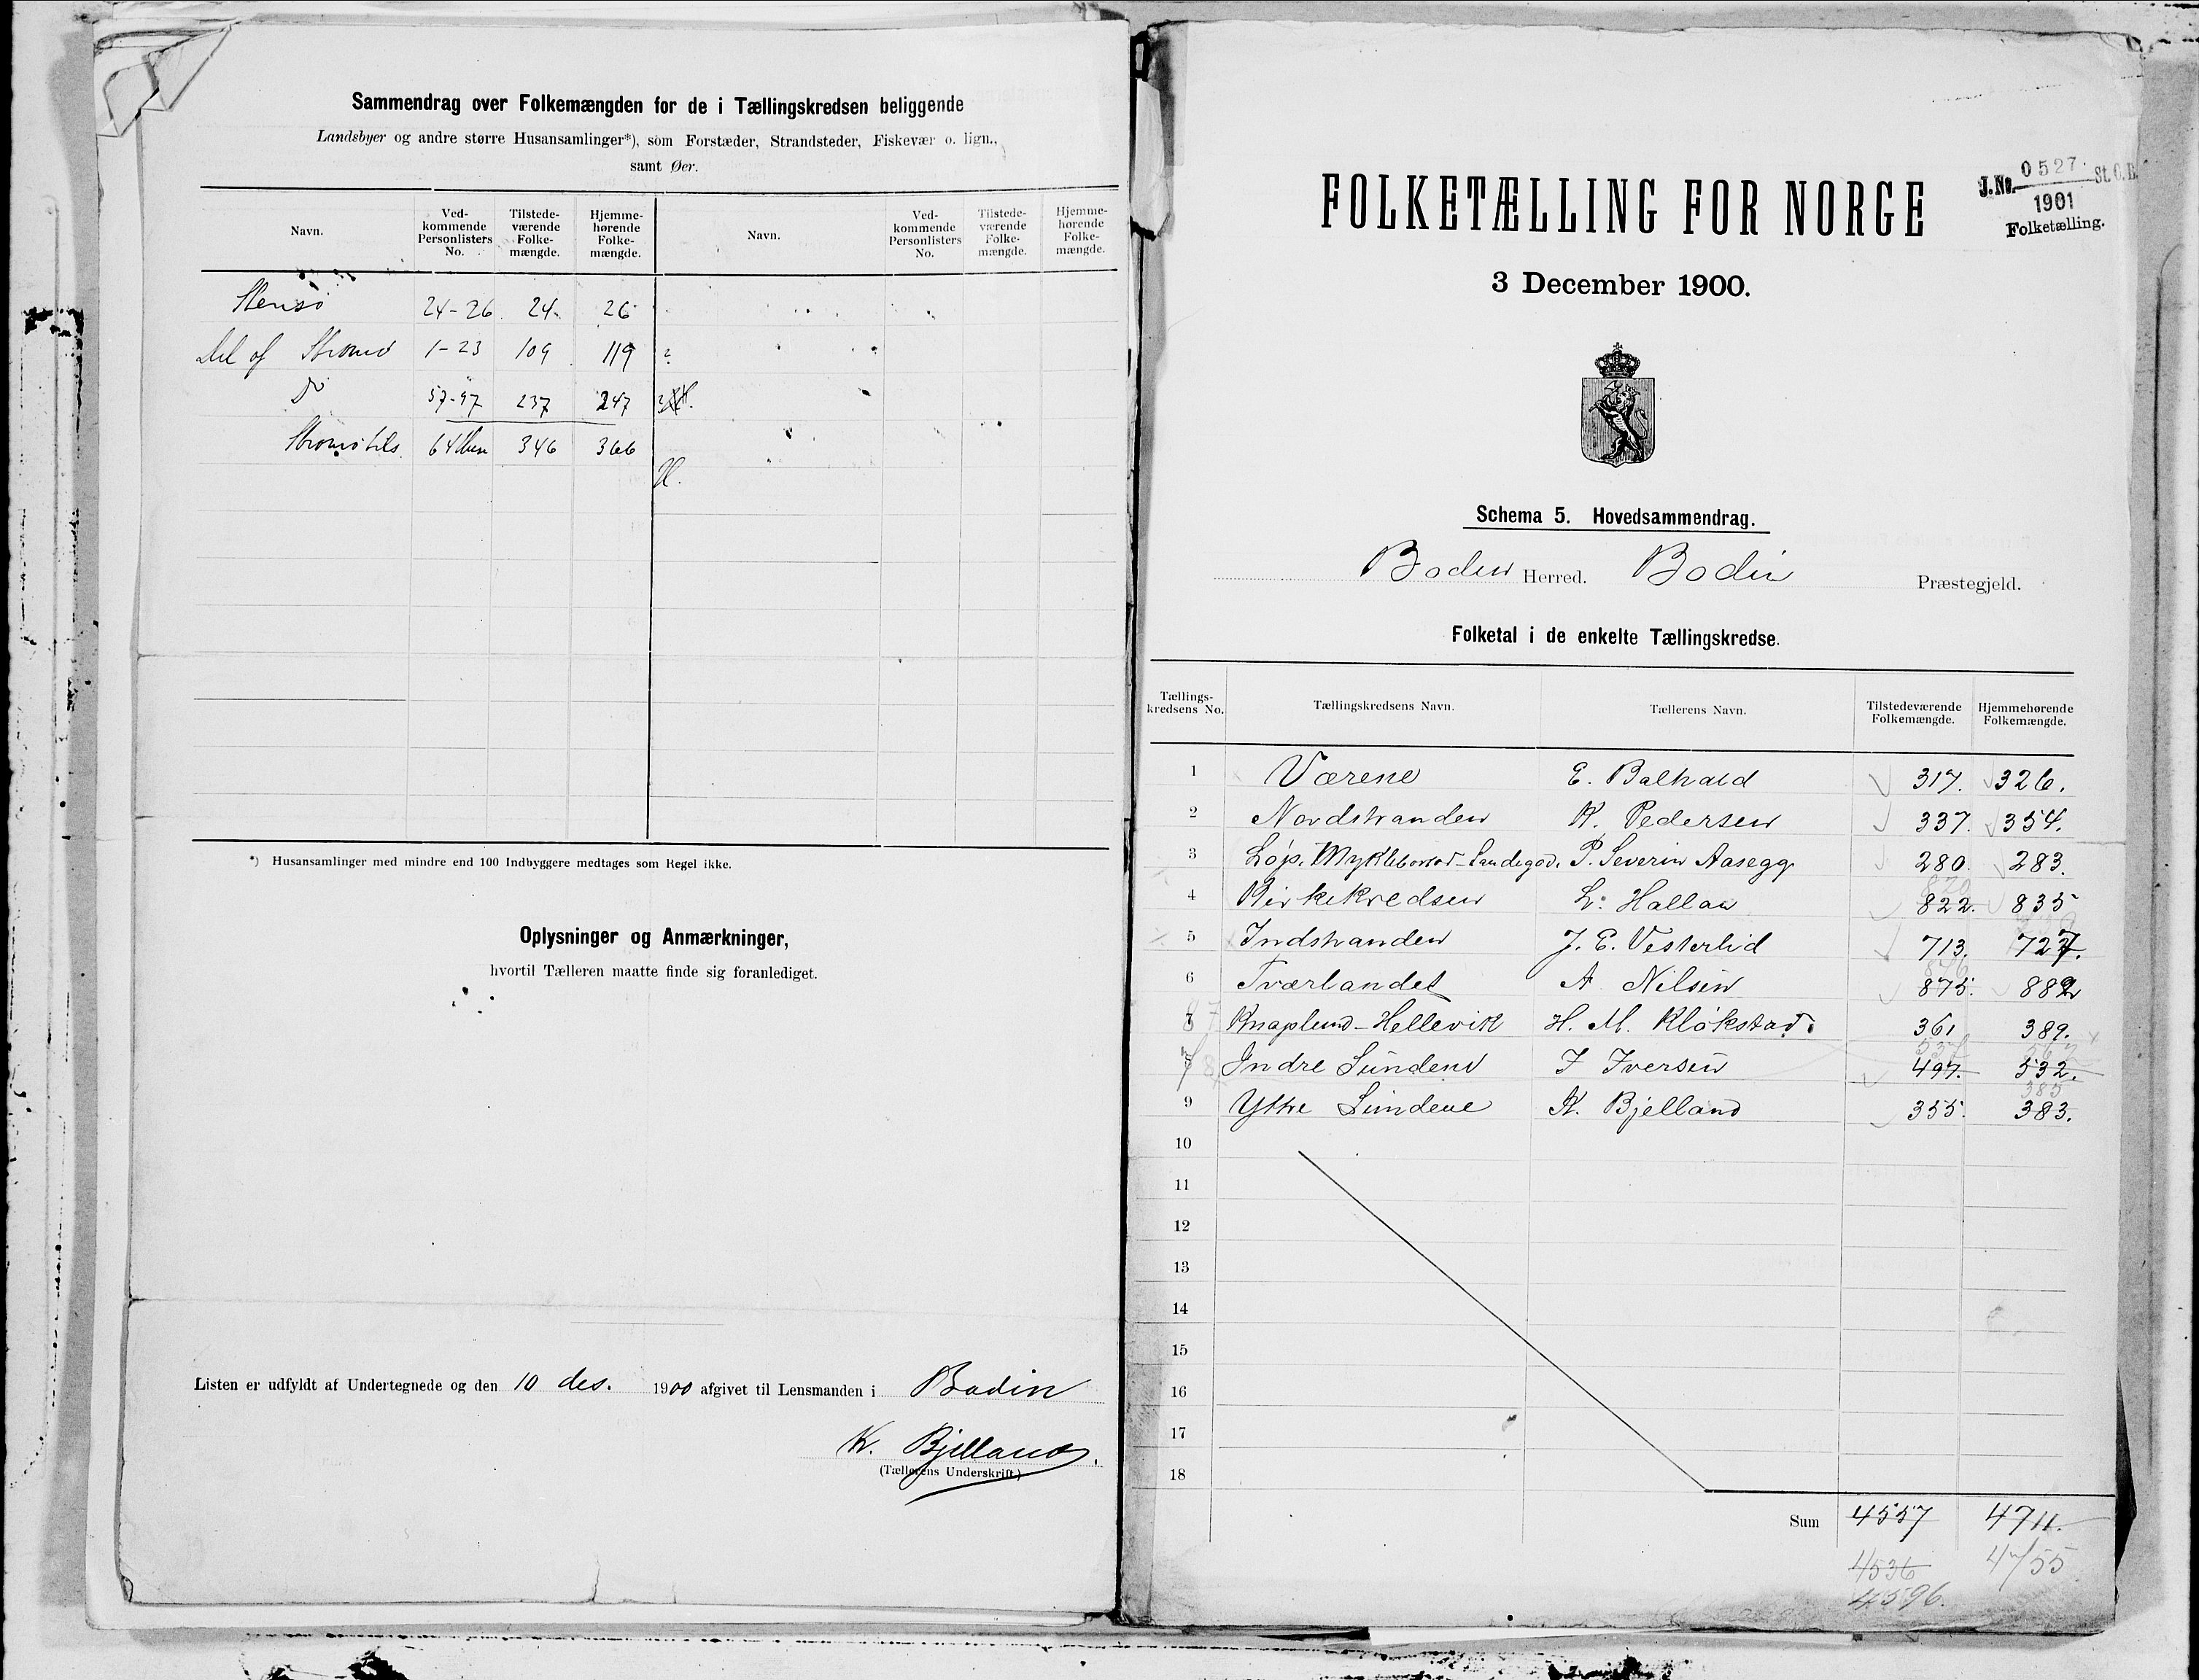 Sammendrag over Folkemængden for de i Tællingskredsen beliggende
Landsbyer og andre større Husansamlinger*), som Forstæder, Strandsteder, Fiskevær o. lign.,
samt Øer.
Navn. Ved-kommende Personlisters No. Tilstede-værende Folke-mængde. Hjemme-hørende Folke-mængde. Navn. Ved-kommende Personlisters No. Tilstede-værende Folke-mængde. Hjemme-hørende Folke-mængde.
24-26 24 26
Del af Strømø 1-23 109 119
Do 57-97 237 247
64 346 366
*) Husansamlinger med mindre end 100 Indbyggere medtages som Regel ikke.
Oplysninger og Anmærkninger,
hvortil Tælleren maatte finde sig foranlediget.
Listen er udfyldt af Undertegnede og den 10 des. 1900 afgivet til Lensmanden i Bodin
K. Bjelland.
(Tællerens Underskrift.)
J. No. 0527 St. C. B.
1901
Folketælling.
FOLKETÆLLING FOR NORGE
3 December 1900.
Schema 5. Hovedsammendrag.
Bodin Herred. Bodin Præstegjeld.
Folketal i de enkelte Tællingskredse.
Tællings-kredsens No. Tællingskredsens Navn. Tællerens Navn. Tilstedeværende Folkemængde. Hjemmehørende Folkemængde.
1 Værene E. 317. 326.
2 Nordstranden K. Pedersen 337. 354.
3 Løp. Myklebostad-Landegod. P. Severin Aasegg 280. 283.
4 Kirkekredsen L. Hallan 822. 835
5 Indstranden J. E. Vesterlid 713. 727.
6 Tværlandet A Nilsen 875. 882
7 Knaplund-Hellevik H. M. Kløkstad. 361 389.
8 Indre Sundene I Iversen 497. 532.
9 Ytre Sundene K. Bjelland 355. 383.
385
10
11
12
13
14
15
16
17
18
Sum 4557 4711.
4536 4755
4596.